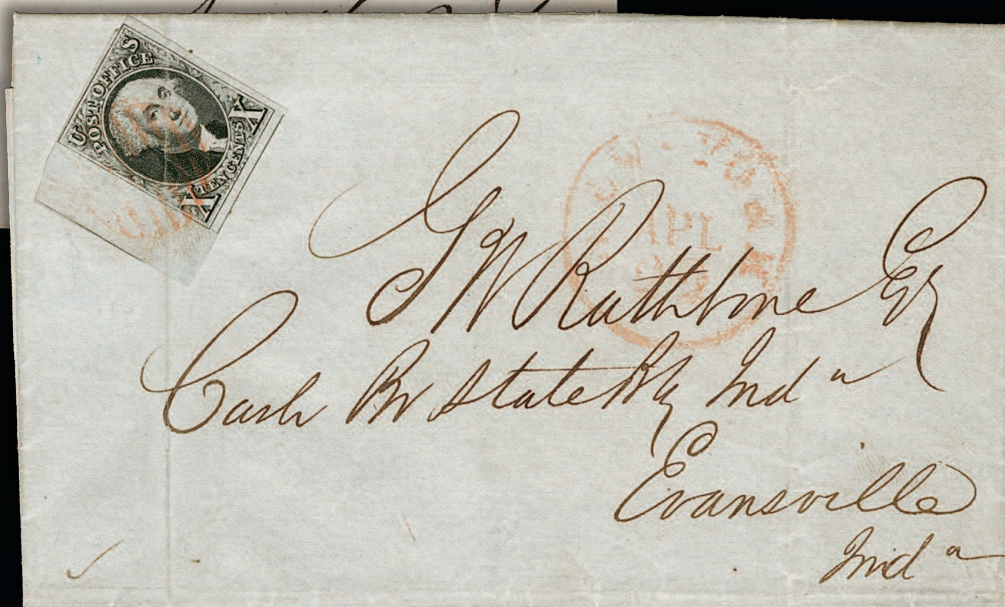 U S
POST OFFICE
X TEN CENTS X
PAID
NEW-YORK
APL
G W Rathbone Esq
Cash Br State Bk Ind a
Evansville
Ind a